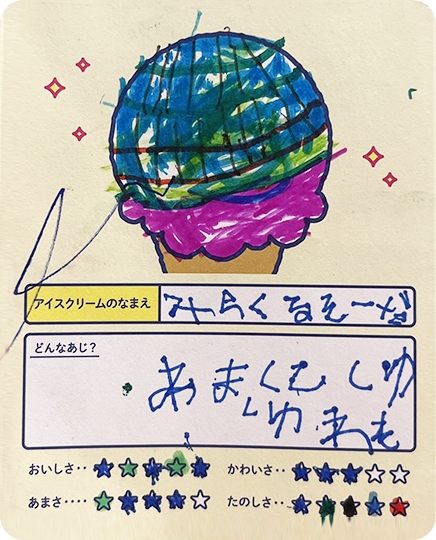 アイスクリームのなまえ
みらくるそーだ
どんなあじ？
あまくて しゅ
しゅわ
おいしさ‥ ★★★★★
かわいさ‥ ★★★☆☆
あまさ‥‥ ★★★★☆
たのしさ‥ ★★★★★